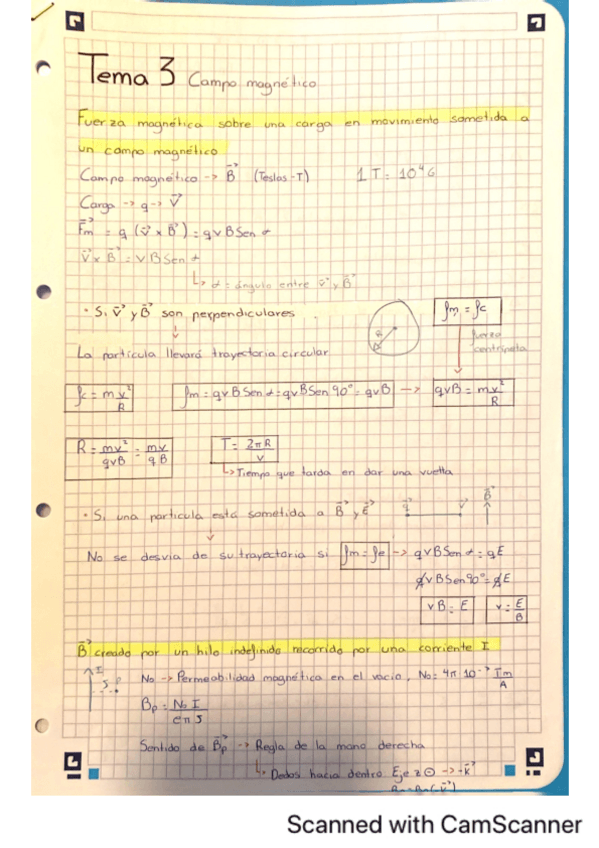 Tema 3 Campo magnético
Fuerza magnética sobre una carga en movimiento sometida a
un campo magnético
Campo magnético -> B⃗ (Teslas - T) 1 T = 10⁴ G
Carga -> q -> V⃗
F⃗m = q (v⃗ x B⃗) = qvBSen α
V⃗ x B⃗ = vBSen α
↳ α = ángulo entre v⃗ y B⃗
· Si v⃗ y B⃗ son perpendiculares
fm = fc
fuerza
centrípeta
La partícula llevará trayectoria circular
R
fc = mv²/R fm = qvBSen α = qvBSen 90° = qvB -> qvB = mv²/R
R = mv²/qvB = mv/qB T = 2πR/v
↳ Tiempo que tarda en dar una vuelta
· Si una partícula está sometida a B⃗ y E⃗
B⃗
No se desvia de su trayectoria si fm = fe -> qvBSen α = qE
qvBSen 90° = qE
vB = E v = E/B
B⃗ creado por un hilo indefinido recorrido por una corriente I
I
No -> Permeabilidad magnética en el vacio, No = 4π 10⁻⁷ Tm/A
Bp = No I
Sentido de B⃗p -> Regla de la mano derecha
↳ Dedos hacia dentro Eje z ⊙ -> -K⃗
Scanned with CamScanner